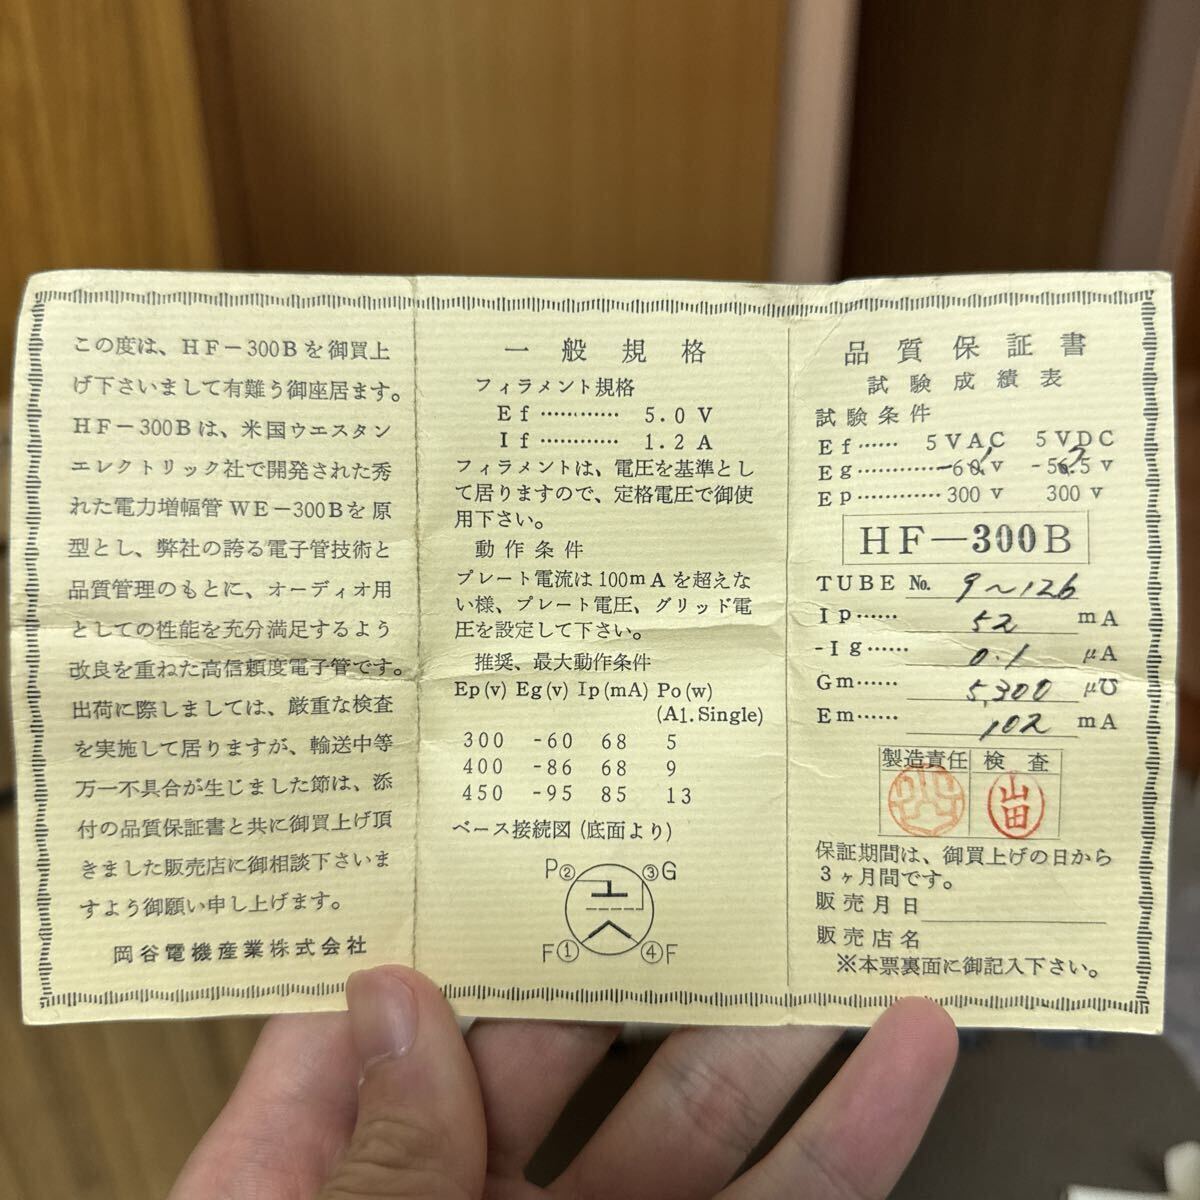 この度は、HF－300Bを御買上
げ下さいまして有難う御座居ます。
HF－300Bは、米国ウエスタン
エレクトリック社で開発された秀
れた電力増幅管WE－300Bを原
型とし、弊社の誇る電子管技術と
品質管理のもとに、オーディオ用
としての性能を充分満足するよう
改良を重ねた高信頼度電子管です。
出荷に際しましては、厳重な検査
を実施して居りますが、輸送中等
万一不具合が生じました節は、添
付の品質保証書と共に御買上げ頂
きました販売店に御相談下さいま
すよう御願い申し上げます。
岡谷電機産業株式会社
一般規格
フィラメント規格
Ef ………… 5.0 V
If ………… 1.2 A
フィラメントは、電圧を基準とし
て居りますので、定格電圧で御使
用下さい。
動作条件
プレート電流は100mAを超えな
い様、プレート電圧、グリッド電
圧を設定して下さい。
推奨、最大動作条件
Ep(v) Eg(v) Ip(mA) Po(w)
(A1.Single)
300 -60 68 5
400 -86 68 9
450 -95 85 13
ベース接続図(底面より)
P② ③G
F① ④F
品質保証書
試験成績表
試験条件
Ef…… 5VAC 5VDC
Eg…………-60v
Ep………… 300 v 300 v
HF—300B
TUBE №. 9～126
Ip…… 52 mA
-Ig…… 0.1 μA
Gm…… 5,300 μ℧
Em…… 102 mA
製造責任 検査
山田
保証期間は、御買上げの日から
3ヶ月間です。
販売月日
販売店名
※本票裏面に御記入下さい。